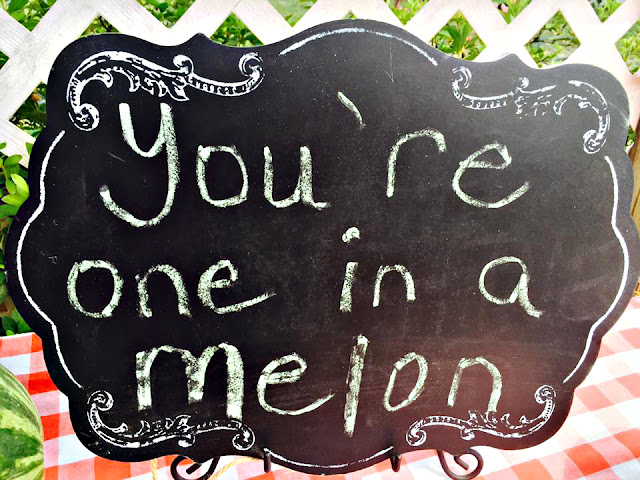 You're
one in a
melon